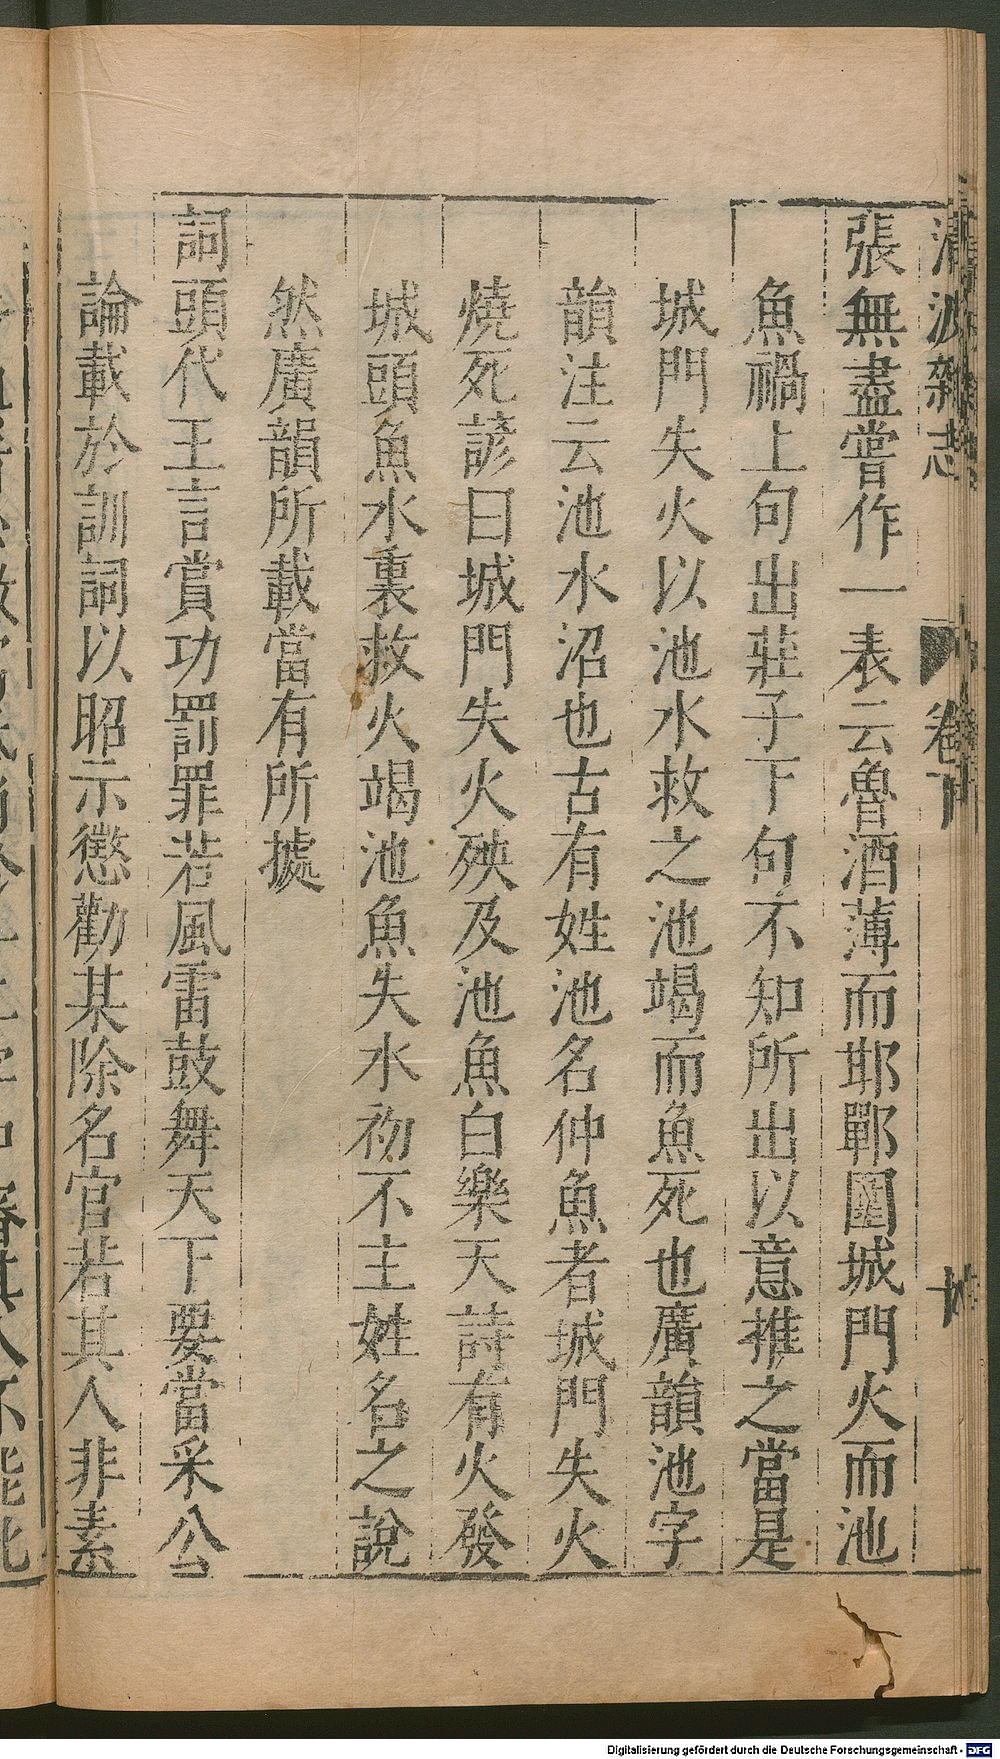 清波雜志 卷下
張無盡嘗作一表云魯酒薄而邯鄲圍城門火而池
魚禍上句出莊子下句不知所出以意推之當是
城門失火以池水救之池竭而魚死也廣韻池字
韻注云池水沼也古有姓池名仲魚者城門失火
燒死諺曰城門失火殃及池魚白樂天詩有火發
城頭魚水裏救火竭池魚失水初不主姓名之說
然廣韻所載當有所據
詞頭代王言賞功罰罪若風雷鼓舞天下要當采公
論載於訓詞以昭示懲勸某除名官若其人非素
Digitalisierung gefördert durch die Deutsche Forschungsgemeinschaft - DFG